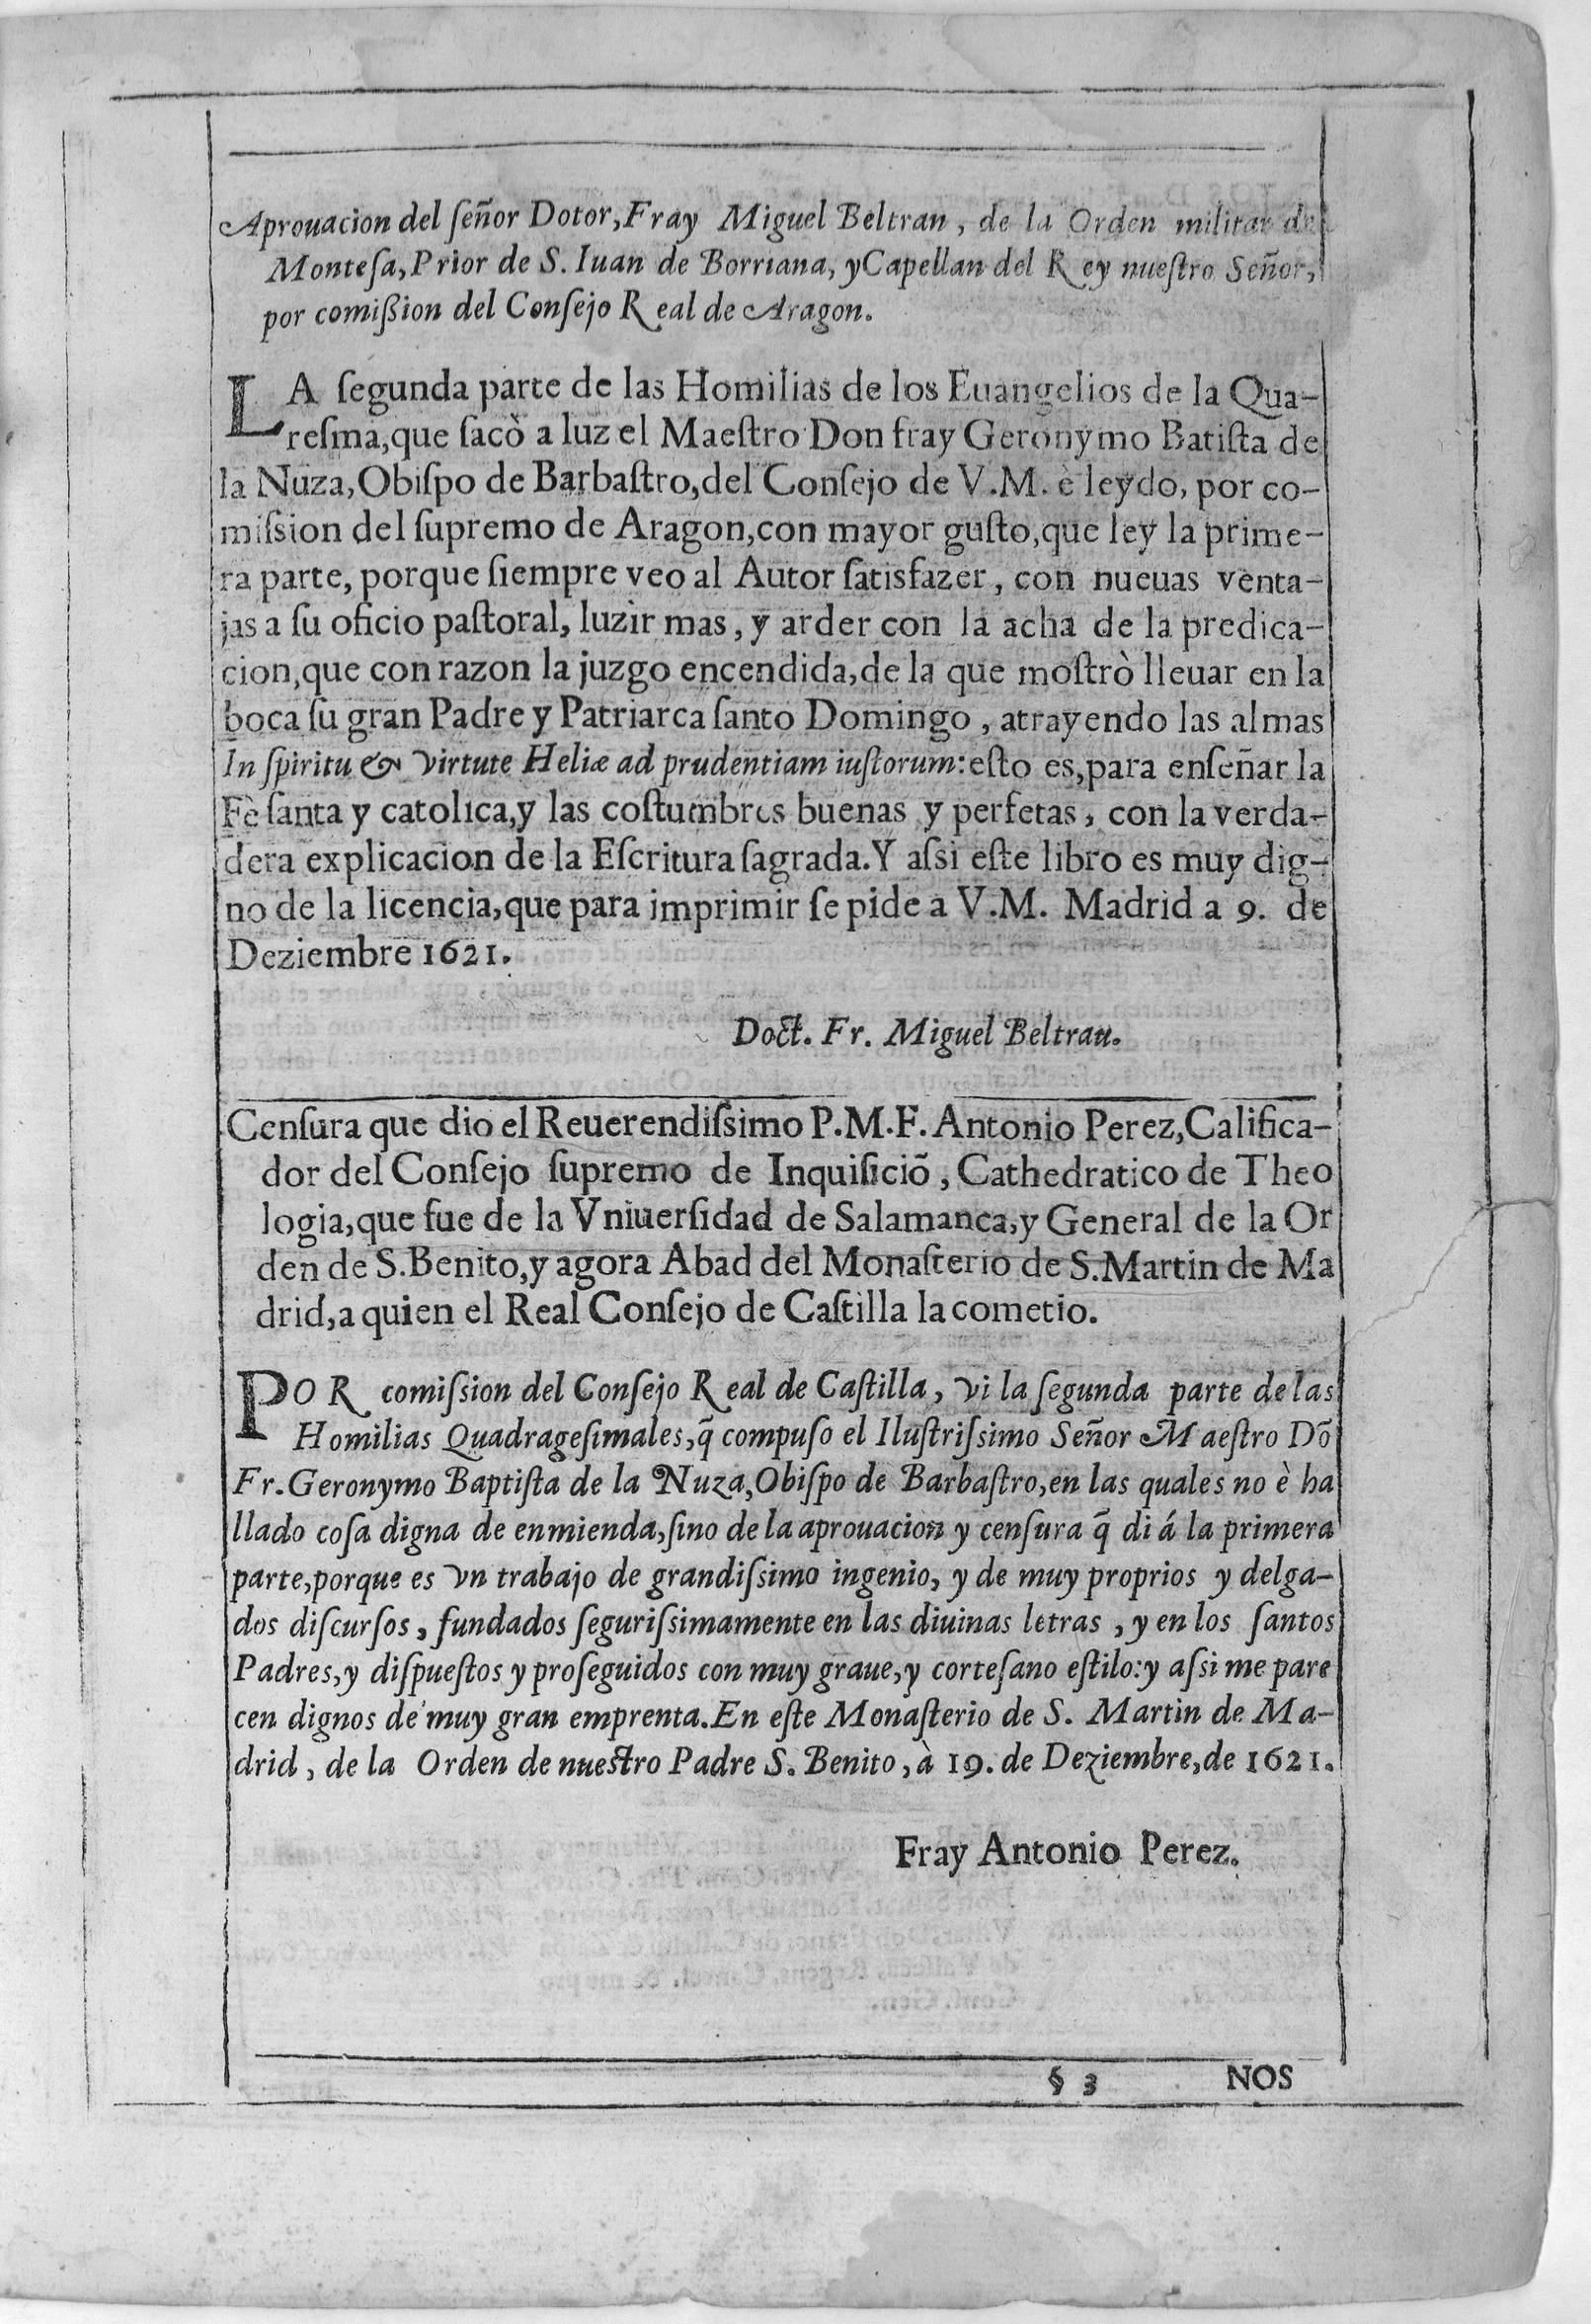 Aprouacion del ſeñor Dotor, Fray Miguel Beltran, de la Orden militar de
Monteſa, Prior de S. Iuan de Borriana, y Capellan del Rey nueſtro Señor,
por comiſsion del Conſejo Real de Aragon.
LA ſegunda parte de las Homilias de los Euangelios de la Qua-
reſma, que ſacò a luz el Maeſtro Don fray Geronymo Batiſta de
la Nuza, Obiſpo de Barbaſtro, del Conſejo de V.M. è leydo, por co-
miſsion del ſupremo de Aragon, con mayor guſto, que ley la prime-
ra parte, porque ſiempre veo al Autor ſatisfazer, con nueuas venta-
jas a ſu oficio paſtoral, luzir mas, y arder con la acha de la predica-
cion, que con razon la juzgo encendida, de la que moſtrò lleuar en la
boca ſu gran Padre y Patriarca ſanto Domingo, atrayendo las almas
In ſpiritu & virtute Heliæ ad prudentiam iuſtorum: eſto es, para enſeñar la
Fè ſanta y catolica, y las coſtumbres buenas y perfetas, con la verda-
dera explicacion de la Eſcritura ſagrada. Y aſsi eſte libro es muy dig-
no de la licencia, que para imprimir ſe pide a V.M. Madrid a 9. de
Deziembre 1621.
Doct. Fr. Miguel Beltran.
Cenſura que dio el Reuerendiſsimo P.M.F. Antonio Perez, Califica-
dor del Conſejo ſupremo de Inquiſiciõ, Cathedratico de Theo
logia, que fue de la Vniuerſidad de Salamanca, y General de la Or
den de S. Benito, y agora Abad del Monaſterio de S. Martin de Ma
drid, a quien el Real Conſejo de Caſtilla la cometio.
POR comiſsion del Conſejo Real de Caſtilla, vi la ſegunda parte de las
Homilias Quadrageſimales, q̃ compuſo el Iluſtriſsimo Señor Maeſtro Dõ
Fr. Geronymo Baptiſta de la Nuza, Obiſpo de Barbaſtro, en las quales no è ha
llado coſa digna de enmienda, ſino de la aprouacion y cenſura q̃ di á la primera
parte, porque es vn trabajo de grandiſsimo ingenio, y de muy proprios y delga-
dos diſcurſos, fundados ſeguriſsimamente en las diuinas letras, y en los ſantos
Padres, y diſpueſtos y proſeguidos con muy graue, y corteſano eſtilo: y aſsi me pare
cen dignos de muy gran emprenta. En eſte Monaſterio de S. Martin de Ma-
drid, de la Orden de nueſtro Padre S. Benito, à 19. de Deziembre, de 1621.
Fray Antonio Perez.
§ 3 NOS